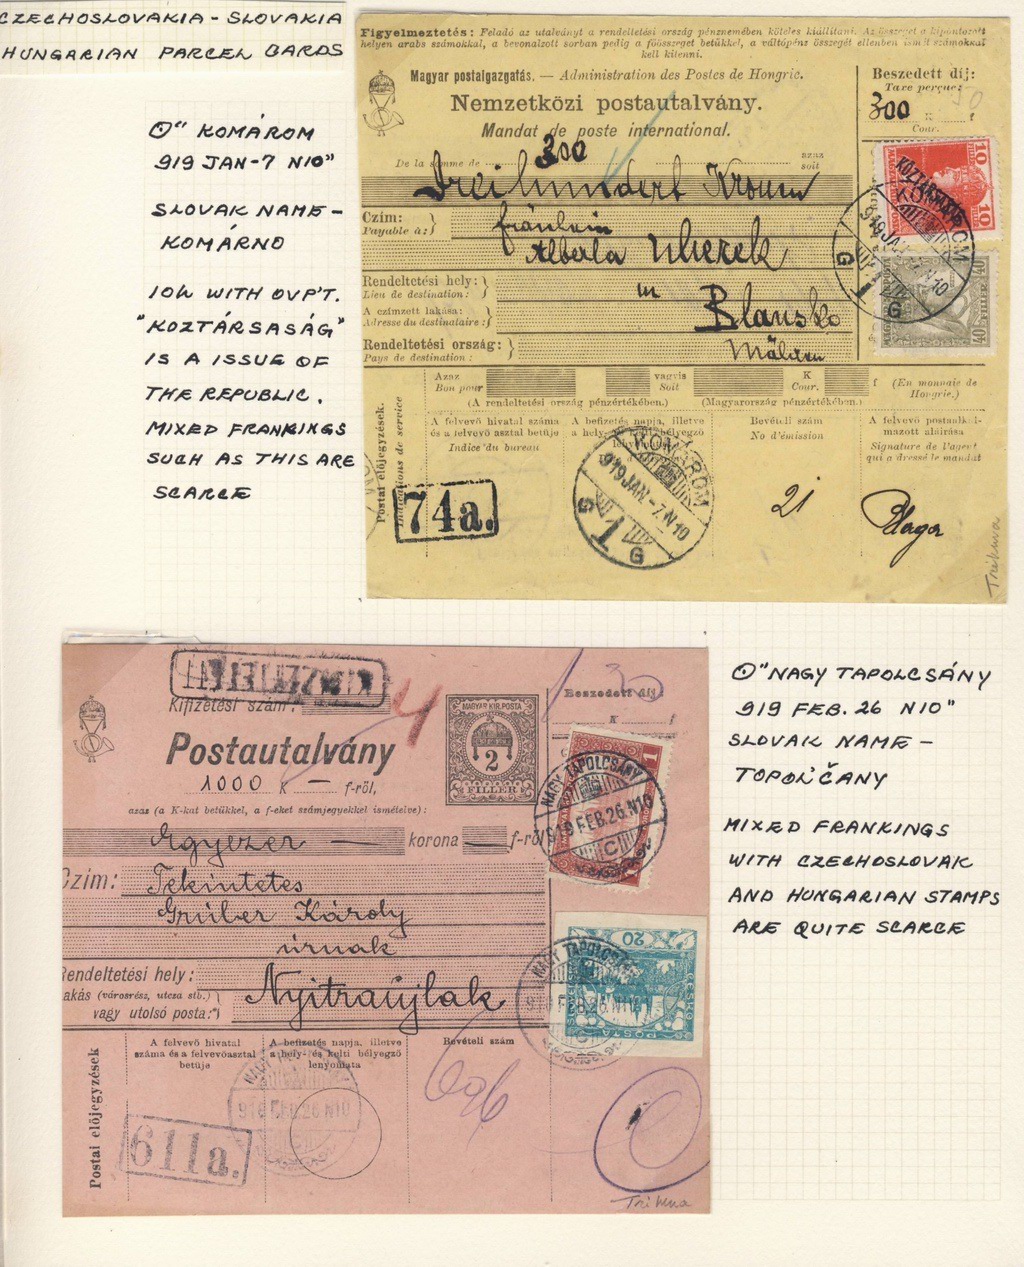 CZECHOSLOVAKIA - SLOVAKIA
HUNGARIAN PARCEL CARDS
⊙" KOMÁROM
919 JAN-7 N10"
SLOVAK NAME -
KOMÁRNO
10h WITH OVP'T.
"KOZTÁRSASÁG"
IS A ISSUE OF
THE REPUBLIC.
MIXED FRANKINGS
SUCH AS THIS ARE
SCARCE
Figyelmeztetés: Feladó az utalványt a rendeltetési ország pénznemében köteles kiállítani. Az összeget a kipontozott
helyen arabs számokkal, a bevonalzott sorban pedig a főösszeget betűkkel, a váltópénz összegét ellenben ismét számokkal
kell kitenni.
Magyar postaigazgatás. — Administration des Postes de Hongrie.
Nemzetközi postautalvány.
Mandat de poste international.
Beszedett díj:
Taxe perçue:
300
K f
Cour.
De la somme de 300 azaz
soit
Dreihundert Kronen
Czím:
Payable à:
fräulein
Alberta Uherek
in
Rendeltetési hely:
Lieu de destination:
A czímzett lakása:
Adresse du destinataire:
Blansko
Rendeltetési ország:
Pays de destination:
Mähren
10 10
KÖZTÁRSASÁG
40 40
KOMÁROM
919 JAN.-7.N10
G 1 G
Azaz
Bon pour
vagyis
Soit
K
Cour.
f
(En monnaie de
Hongrie.)
(A rendeltetési ország pénzértékében.)
(Magyarország pénzértékében.)
Postai előjegyzések.
Indications de service
A felvevő hivatal száma
és a felvevő asztal betűje
Indice du bureau
A befizetés napja, illetve
a hely- bélyegző
lenyomata
Bevételi szám
No d'émission
A felvevő postaalkal-
mazott aláírása
Signature de l'agent
qui a dressé le mandat
74a.
KOMÁROM
919 JAN.-7.N10
G 1 G
21
Trikuva
Kifizetési szám:
4
Beszedett díj:
K f
MAGYAR KIR. POSTA
2
FILLÉR
Postautalvány
1000 K — f-ről,
azaz (a K-kat betűkkel, a f-eket számjegyekkel ismételve):
Egyezer — korona f-ről
Czím:
Tekintetes
Grúber Károly
úrnak
Rendeltetési hely:
Lakás (városrész, utcza stb.)
vagy utolsó posta:
Nyitraújlak
NAGY TAPOLCSÁNY
919 FEB.26.N10
C
20
POSTA
ČESKO
NAGY TAPOLCSÁNY
919 FEB.26.N10
C
Postai előjegyzések
A felvevő hivatal
száma és a felvevőasztal
betűje
A befizetés napja, illetve
a hely- és kelti bélyegző
lenyomata
Bevételi szám
NAGY TAPOLCSÁNY
919 FEB.26 N10
C
611a.
696
Trikuva
⊙"NAGY TAPOLCSÁNY
919 FEB. 26 N10"
SLOVAK NAME -
TOPOL'ČANY
MIXED FRANKINGS
WITH CZECHOSLOVAK
AND HUNGARIAN STAMPS
ARE QUITE SCARCE